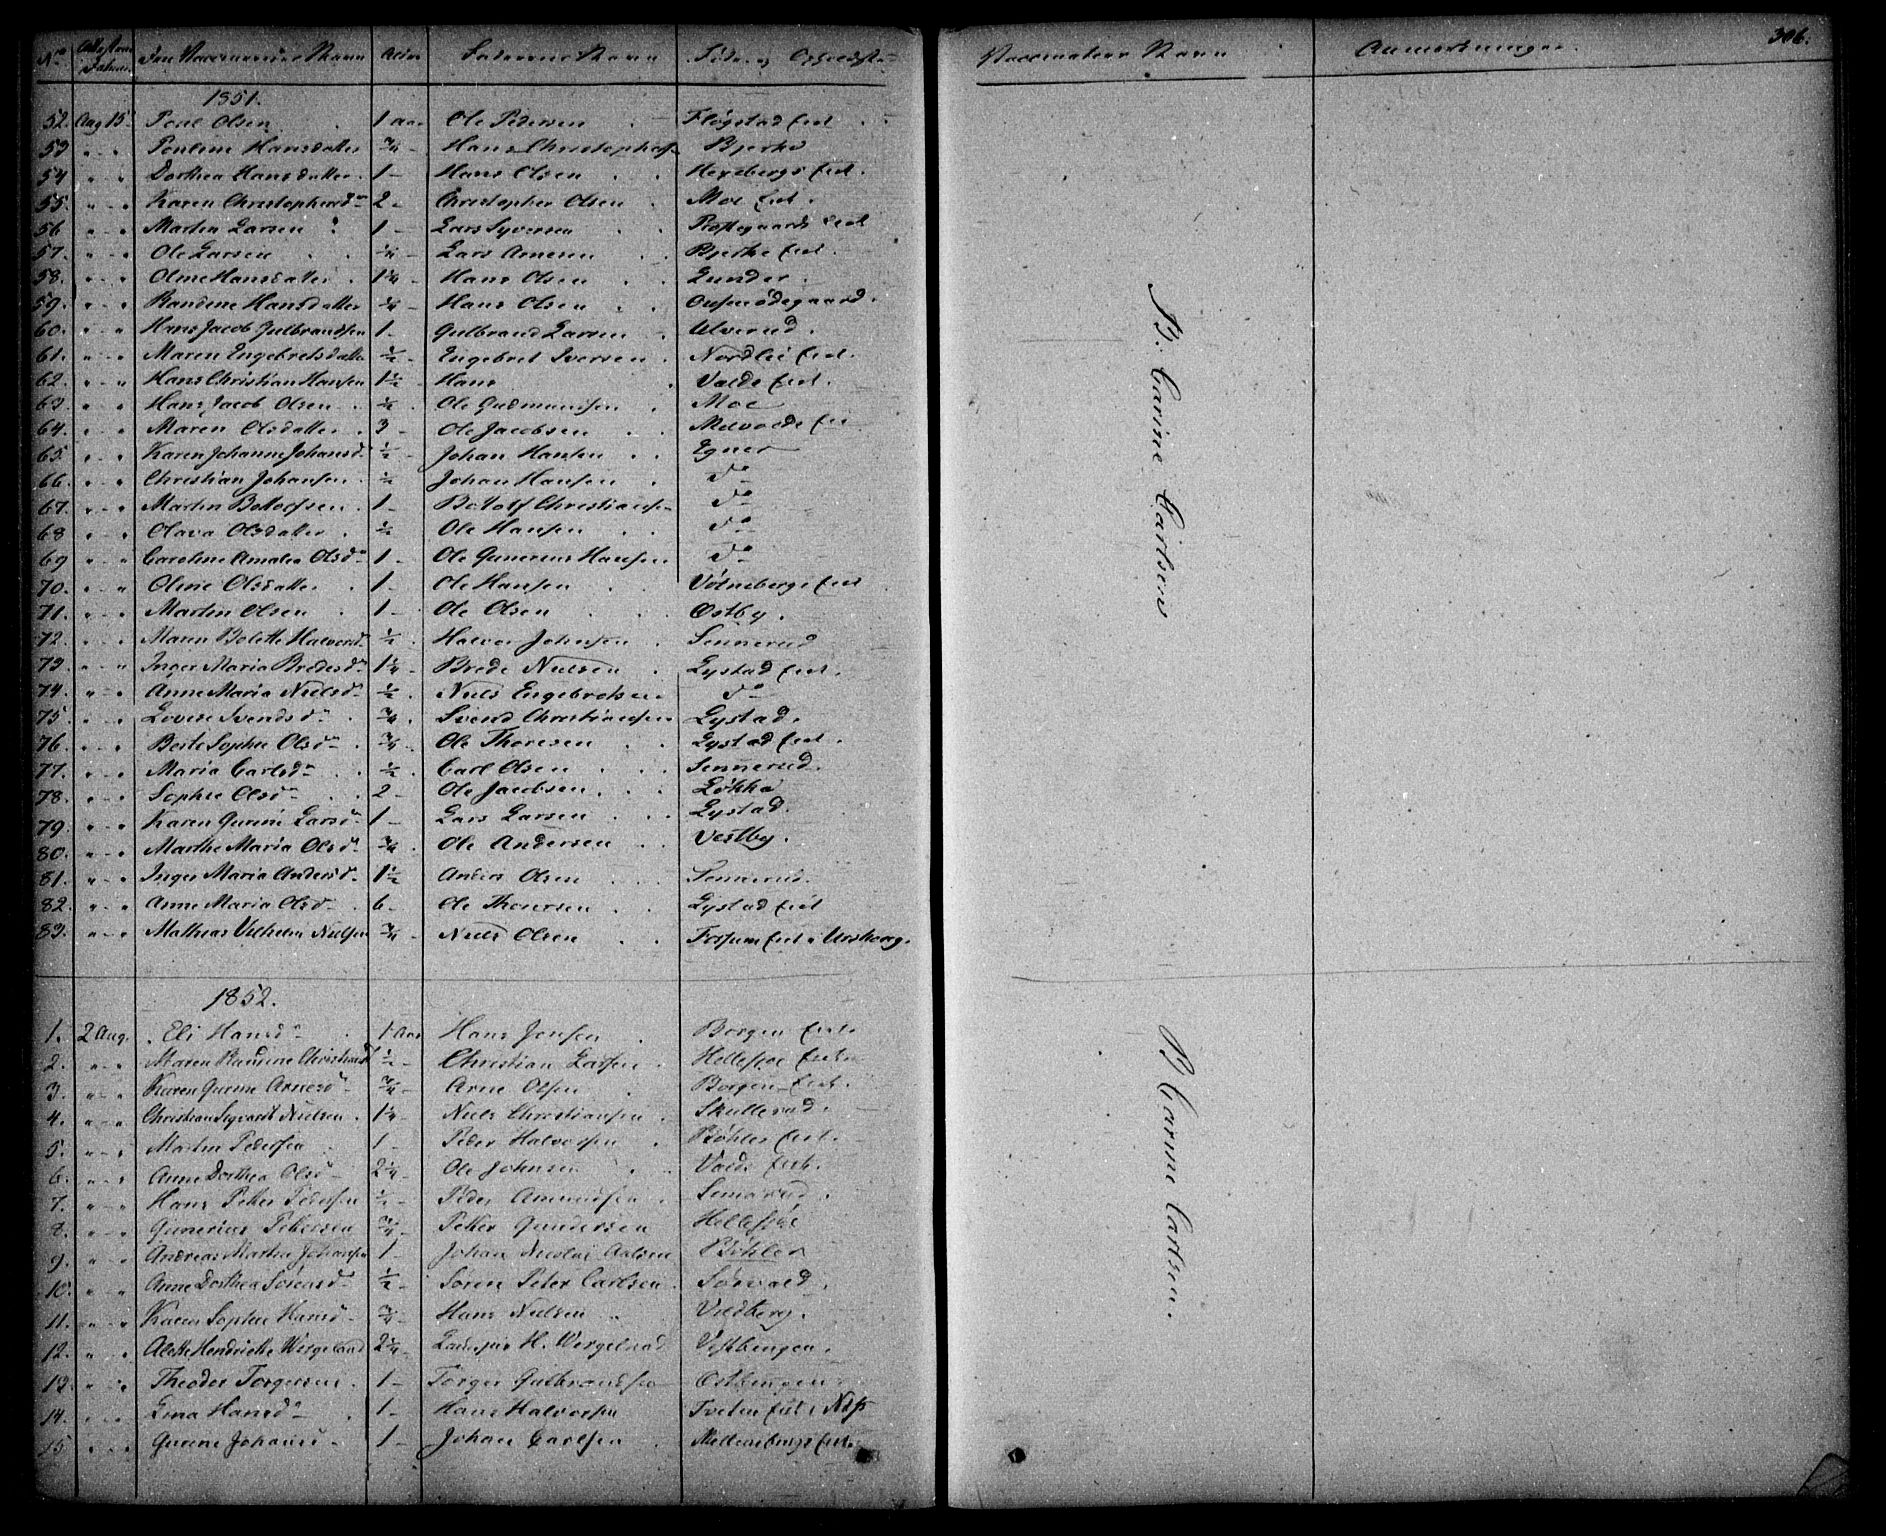 No Attestens Datum Den Vaccineredes Navn Alder Faderens Navn Føde og Opholdsted Vaccinateur Navn Anmærkninger. 306.
1851.
52. Aug 15 Poul Olsen 1 aar Ole Pedersen Fløgstad Eiet
53 " - " Pouline Hansdatter 3/4 - Hans Christophersen Bjerke
54 " - " Dorthea Hansdatter 1 - Hans Olsen Hexebergs Eiet.
55 " - " Karen Christophersdr 2 - Christopher Olsen Moe Eiet.
56 " - " Martin Larsen 1 - Lars Syversen Præstegaards Eiet
57. " - " Ole Larsen 1/4 - Lars Arnesen Bjerke Eiet.
58. " - " Oline Hansdatter 1 1/4 - Hans Olsen Lunder.
59. " - " Randine Hansdatter 1/4 - Hans Olsen ødegaard.
60. " - " Hans Jacob Gulbrandsen 1 - Gulbrand Larsen Ulverud.
61. " - " Maren Engebretsdatter 1/2 - Engebret Iversen Nordlie Eiet.
62. " - " Hans Christian Hansen 1 1/2 - Hans Valde Eiet.
63. " - " Hans Jacob Olsen 1/2 Ole Gudmundsen Moe
64. " - " Maren Olsdatter 3 - Ole Jacobsen Eie
65. " - " Karen Johanne Johansd 1/2 - Johan Hansen Egner
66. " - " Christian Johansen 1/2 Johan Hansen do
67. " - " Martin Botolfsen 1 - Botolf Christiansen do
68 " - " Olava Olsdatter 1/2 Ole Hansen do
69 " - " Caroline Amalia Olsdr 1 - Ole Gunerius Hansen do
70. " - " Oline Olsdatter 1 - Ole Hansen Vølnebergs Eiet
71. " - " Martin Olsen 1 - Ole Olsen Østby.
72. " - " Maren Bolette Halvorsd 1/2 Halvor Johnsen Sennerud
73. " - " Inger Maria Bredesdr 1 1/4 - Brede Nielsen Lystad Eiet.
74. " - " Anne Maria Nielsdr 1/2 Niels Engebretsen do
75. " - " Lovise Svendsdr 3/4 Svend Christiansen Lystad.
76. " - " Berte Sophie Olsdr 3/4 - Ole Thoresen Lystad Eiet.
77. " - " Maria Carlsdr 1/2 Carl Olsen Sennerud.
78. " - " Sophie Olsdr 2 - Ole Jacobsen Løkka
79. " - " Karen Gurine Larsdr 1 - Lars Larsen Lystad.
80. " - " Marthe Maria Olsdr 3/4 Ole Andersen Vestby.
81. " - " Inger Maria Andersdr 1 1/2 Anders Olsen Sennerud.
82. " - " Anne Maria Olsdr 6 - Ole Thoresen Lystad Eiet
83. " - " Mathias Vilhelm Nielsen 3/4 - Niels Olsen Fossum Eiet i Urskoug.
B. Carine Carlsen
1852.
1. 2 Aug. Eli Hansdr 1 Aar Hans Jensen Borgen Eiet.
2. " - " Maren Randine Christiansd 1/2 - Christian Larsen Hellesjøe Eiet
3. " - " Karen Gurine Arnesdr 3/4 - Arne Olsen Borgen Eiet.
4. " - " Christian Sigvardt Nielsen 1 1/4 - Niels Christiansen Skullerud.
5. " - " Martin Pedersen 1 - Peder Halvorsen Bøhler Eiet.
6. " - " Anne Dorthea Olsdr 2 1/4 - Ole Johnsen Valde Eiet.
7. " - " Hans Petter Pedersen 1/2 - Peder Amundsen
8. " - " Gunerius Pettersen 3/4 - Petter Gundersen Hellesjøe
9. " - " Andreas Martin Johansen 1 - Johan Nicolai Bøhler
10. " - " Anne Dorthea Sørensdr 1/2 - Søren Peter Carlsen Sørvald.
11. " - " Karen Sophie Hansdr 3/4 Hans Nielsen Vildberg.
12. " - " Alette Hendriette Wergeland 2 1/4 - H. Wergeland Vestbingen.
13. " - " Theodor Torgersen 1 - Torger Gulbrandsen Østbingen
14. " - " Lina Hansdr 1 - Hans Halvorsen Tveten Eiet i Næss
15 " - " Gurine Johansdr 1 - Johan Carlsen Mellembergs Eiet.
B. Carine Carlsen.